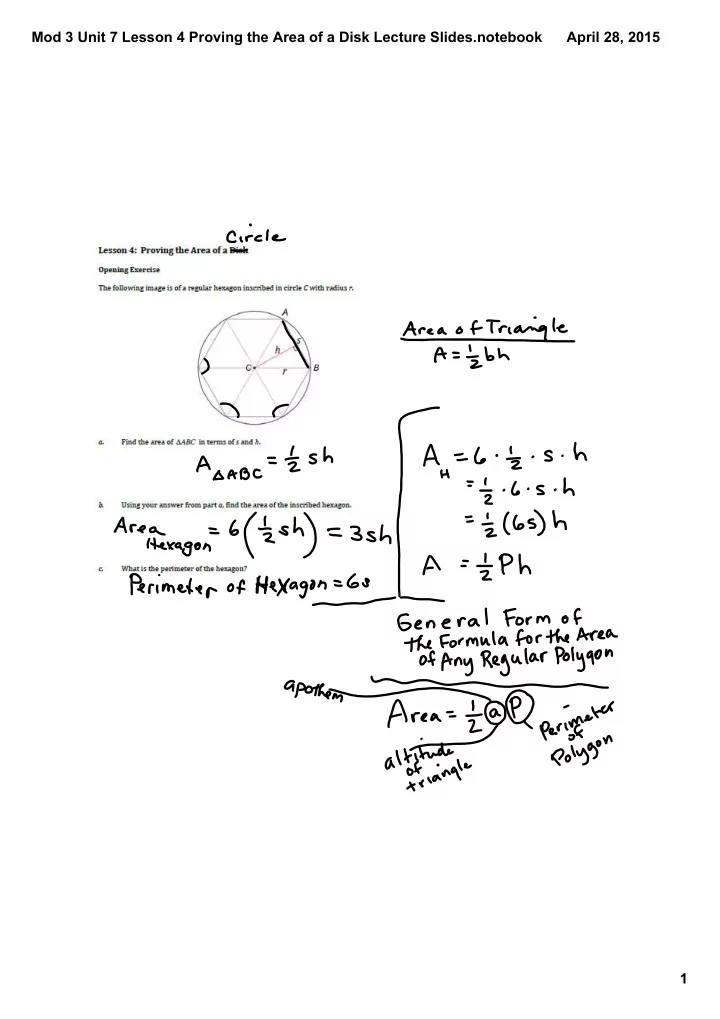 Mod 3 Unit 7 Lesson 4 Proving the Area of a Disk Lecture Slides.notebook April 28, 2015
Circle
Lesson 4: Proving the Area of a Disk
Opening Exercise
The following image is of a regular hexagon inscribed in circle C with radius r.
A
s
h
C
r
B
Area of Triangle
A = 1/2 bh
a. Find the area of △ABC in terms of s and h.
A △ABC = 1/2 sh
b. Using your answer from part a, find the area of the inscribed hexagon.
Area Hexagon = 6(1/2 sh) = 3sh
c. What is the perimeter of the hexagon?
Perimeter of Hexagon = 6s
A H = 6 · 1/2 · s · h
= 1/2 · 6 · s · h
= 1/2 (6s) h
A = 1/2 Ph
General Form of
the Formula for the Area
of Any Regular Polygon
apothem
Area = 1/2 a P
altitude
of
triangle
Perimeter
of
Polygon
1